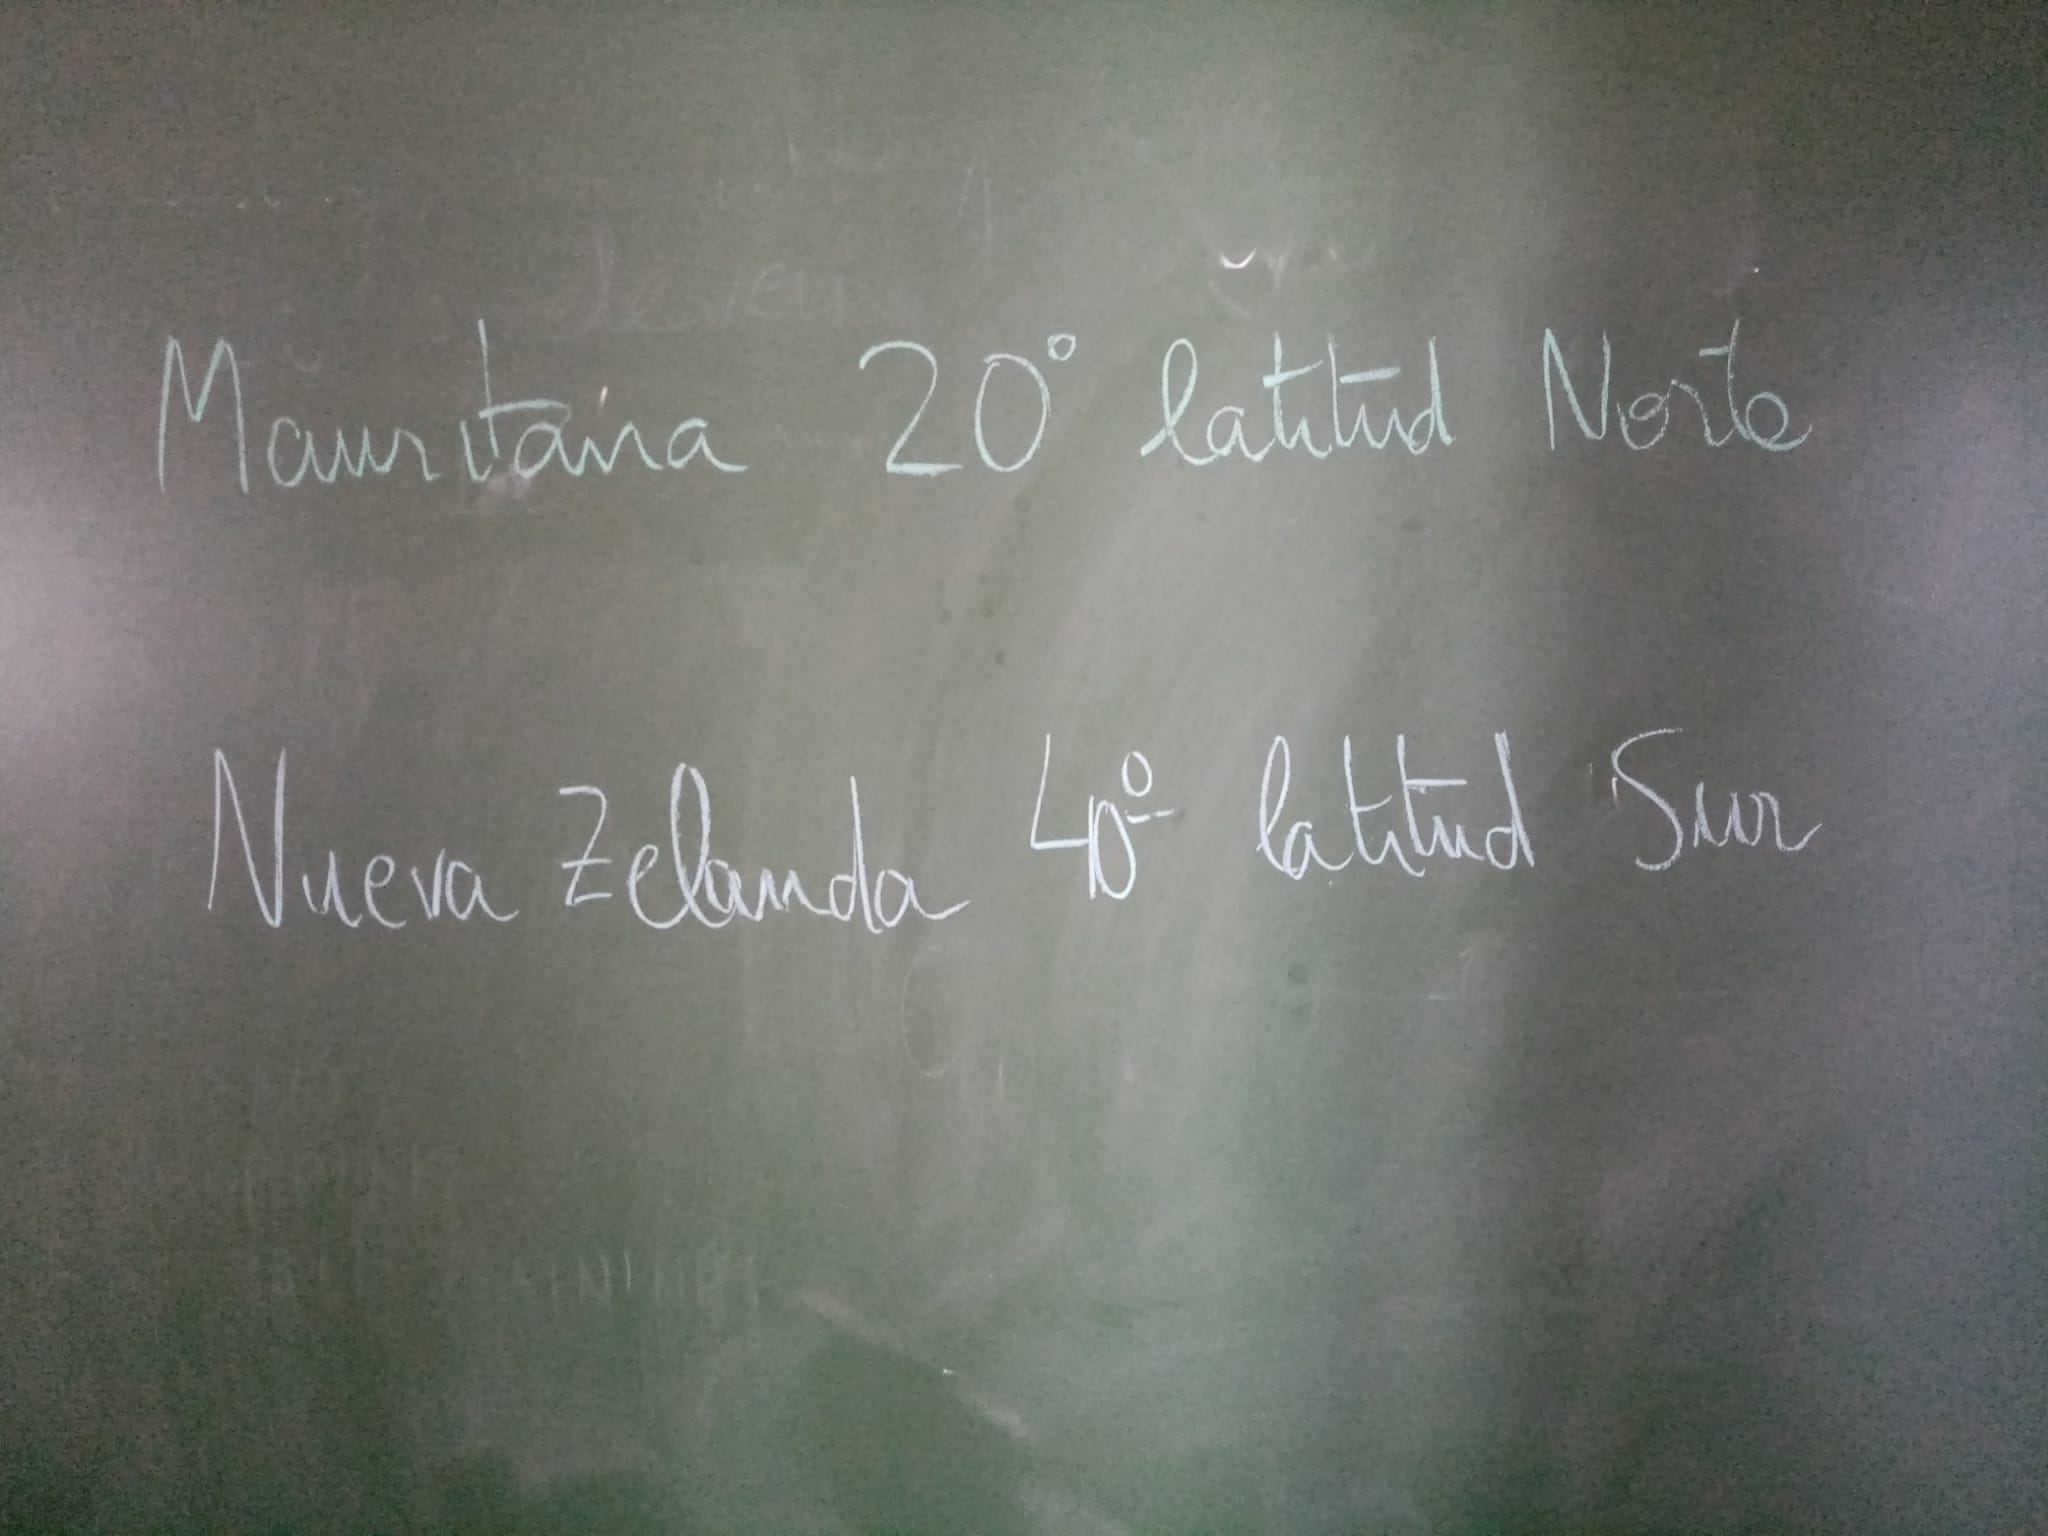 Mauritania 20° latitud Norte
Nueva Zelanda 40º latitud Sur